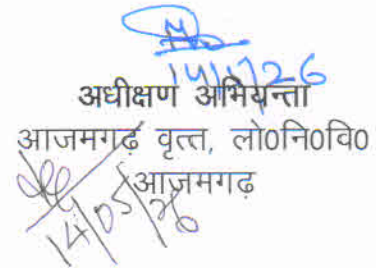 अधीक्षण अभियन्ता
आजमगढ़ वृत्त, लो0नि0वि0
आज़मगढ़
14/05/26